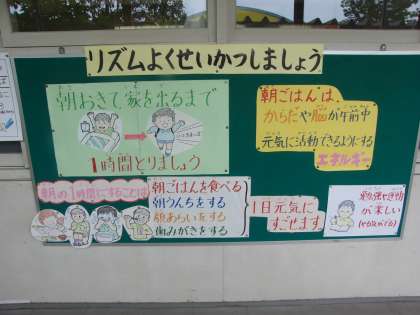 リズムよくせいかつしましょう
朝おきて、家を出るまで
1時間とりましょう
朝ごはんは、
からだや脳が午前中
元気に活動できるようにする
エネルギー
朝の1時間にすることは
朝ごはんを食べる
朝うんちをする
顔あらいをする
歯みがきをする
1日元気に
すごせます。
勉強や運動
が楽しい